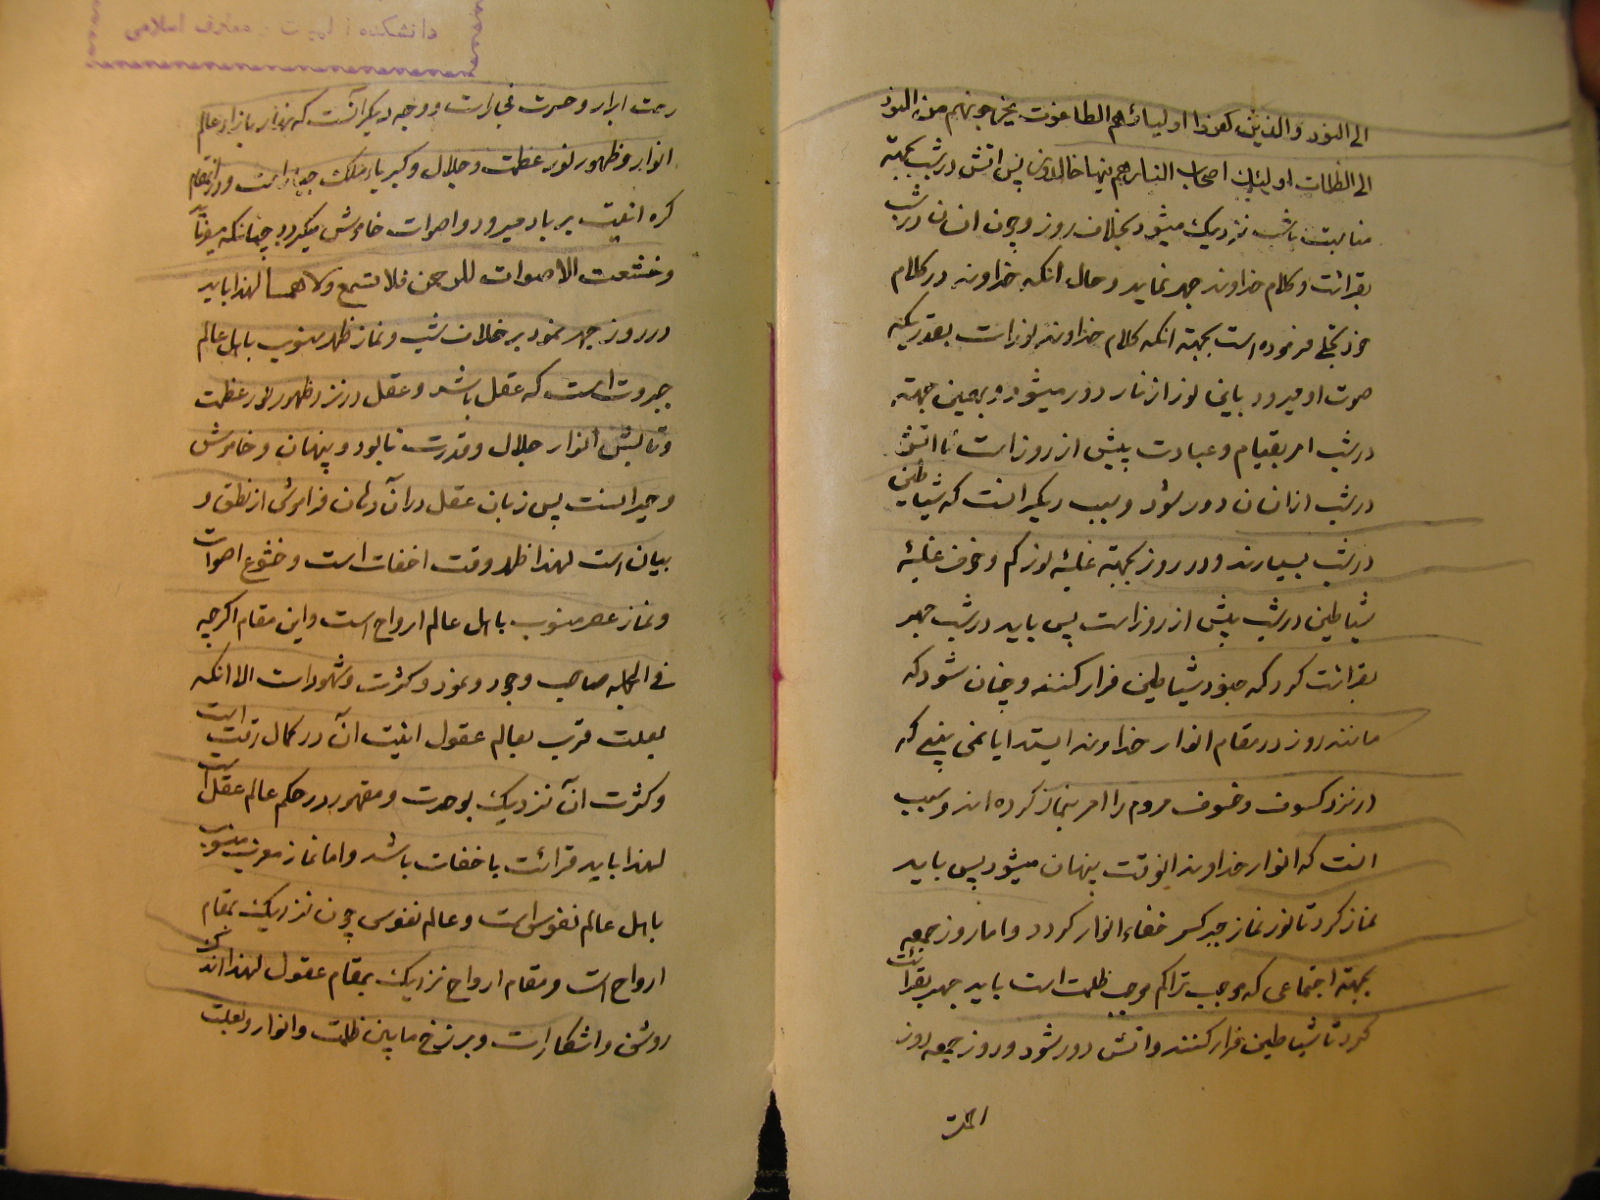 الی النور والذین کفروا اولیاؤهم الطاغوت یخرجونهم من النور
الی الظلمات اولئک اصحاب النار هم فیها خالدون پس اتش در شب بجهته
مناسبت باشب نزدیک میشود بخلاف روز و چون انسان در شب
بقرائت و کلام خداوند جهر نماید و حال انکه خداوند در کلام
خود تجلی فرموده است بجهته انکه کلام خداوند نور است بقدریکه
صوت او میرود باین نور از نار دور میشود و بهمین جهته
در شب امر بقیام و عبادت بیش از روز است تا اتش
در شب از انسان دور شود و سبب دیگر انست که شیاطین
در شب بسیارند و در روز بجهته غلبهٔ نور کم و خوف غلبهٔ
شیاطین در شب بیش از روز است پس باید در شب جهر
بقرائت کرد که جنود شیاطین فرار کنند و چنان شود که
مانند روز در مقام انوار خداوند ایستد ایا نمی بینی که
در نزد کسوف و خسوف مردم را امر بنماز کرده اند و سبب
انست که انوار خداوند انوقت پنهان میشود پس باید
نماز کرد تا نور نماز جبر کسر خفاء انوار کردد و اما روز جمعه
بجهته اجتماعی که موجب تراکم موجب ظلمت است باید جهر بقرائت
کرد تا شیاطین فرار کنند و اتش دور شود و روز جمعه روز
دانشکده الهیات و معارف اسلامی
رحمت ابرار و حسرت فجار است و وجه دیگر آنست که نهار بازار عالم
انوار و ظهور نور عظمت و جلال و کبریاء ملک جبار است و در انمقام
کره انیت بر باد میرود و اصوات خاموش میکردد چنانکه میفرماید
و خشعت الاصوات للرحمن فلا تسمع الا همسا لهذا باید
در روز جهر ننمود بر خلاف شب و نماز ظهر منسوب باهل عالم
جبروت است که عقل باشد و عقل در نزد ظهور نور عظمت
و تابش انوار جلال و قدرت نابود و پنهان و خاموش
و حیرانست پس زبان عقل در آن زمان فراموش از نطق و
بیان است لهذا ظهر وقت اخفات است و خشوع اصوات
و نماز عصر منسوب باهل عالم ارواح است و این مقام اکرچه
فی الجمله صاحب وجود و نمود و کثرت و شهود است الا انکه
بعلت قرب بعالم عقول انیت آن در کمال رقیت است
و کثرت آن نزدیک بوحدت و مقهور در حکم عالم عقل است
لهذا باید قرائت باخفات باشد و اما نماز مغرب منسوب
باهل عالم نفوس است و عالم نفوس چون نزدیک بمقام
ارواح است و مقام ارواح نزدیک بمقام عقول لهذا اندکی
روشن و اشکار است و برزخ مابین ظلمت و انوار و بعلت